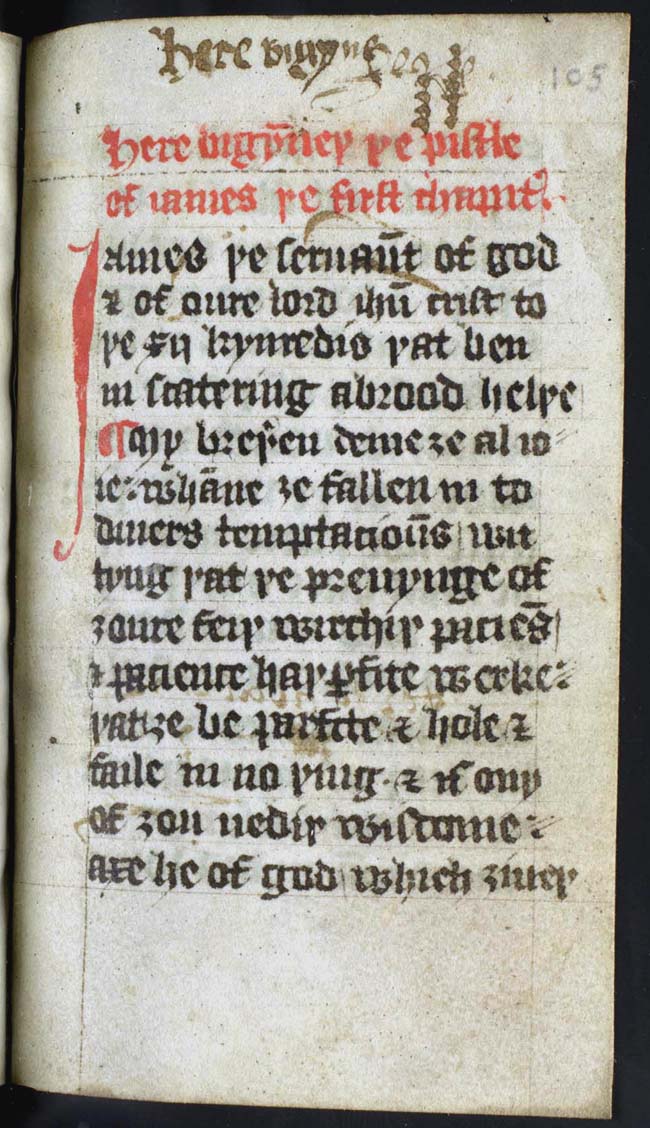 Here bigyne
105
Here bigyn̄neþ þe pistle
of iames þe first chapitr̉.
James þe seruaūt of god
⁊ of oure lord ihū crist to
þe xij kynredis þat ben
in scatering abrood helþe
¶ My breþ̉en deme ȝe al io⸗
ie: whāne ȝe fallen in to
diuers temptacioūs wit
tyng þat þe preuynge of
ȝoure feiþ wirchiþ paciēs
⁊ pacience haþ ꝑfite werke:
þat ȝe be parfite ⁊ hole ⁊
faile in no þing. ⁊ if ony
of ȝou nediþ wisdome:
axe he of god which ȝiueþ